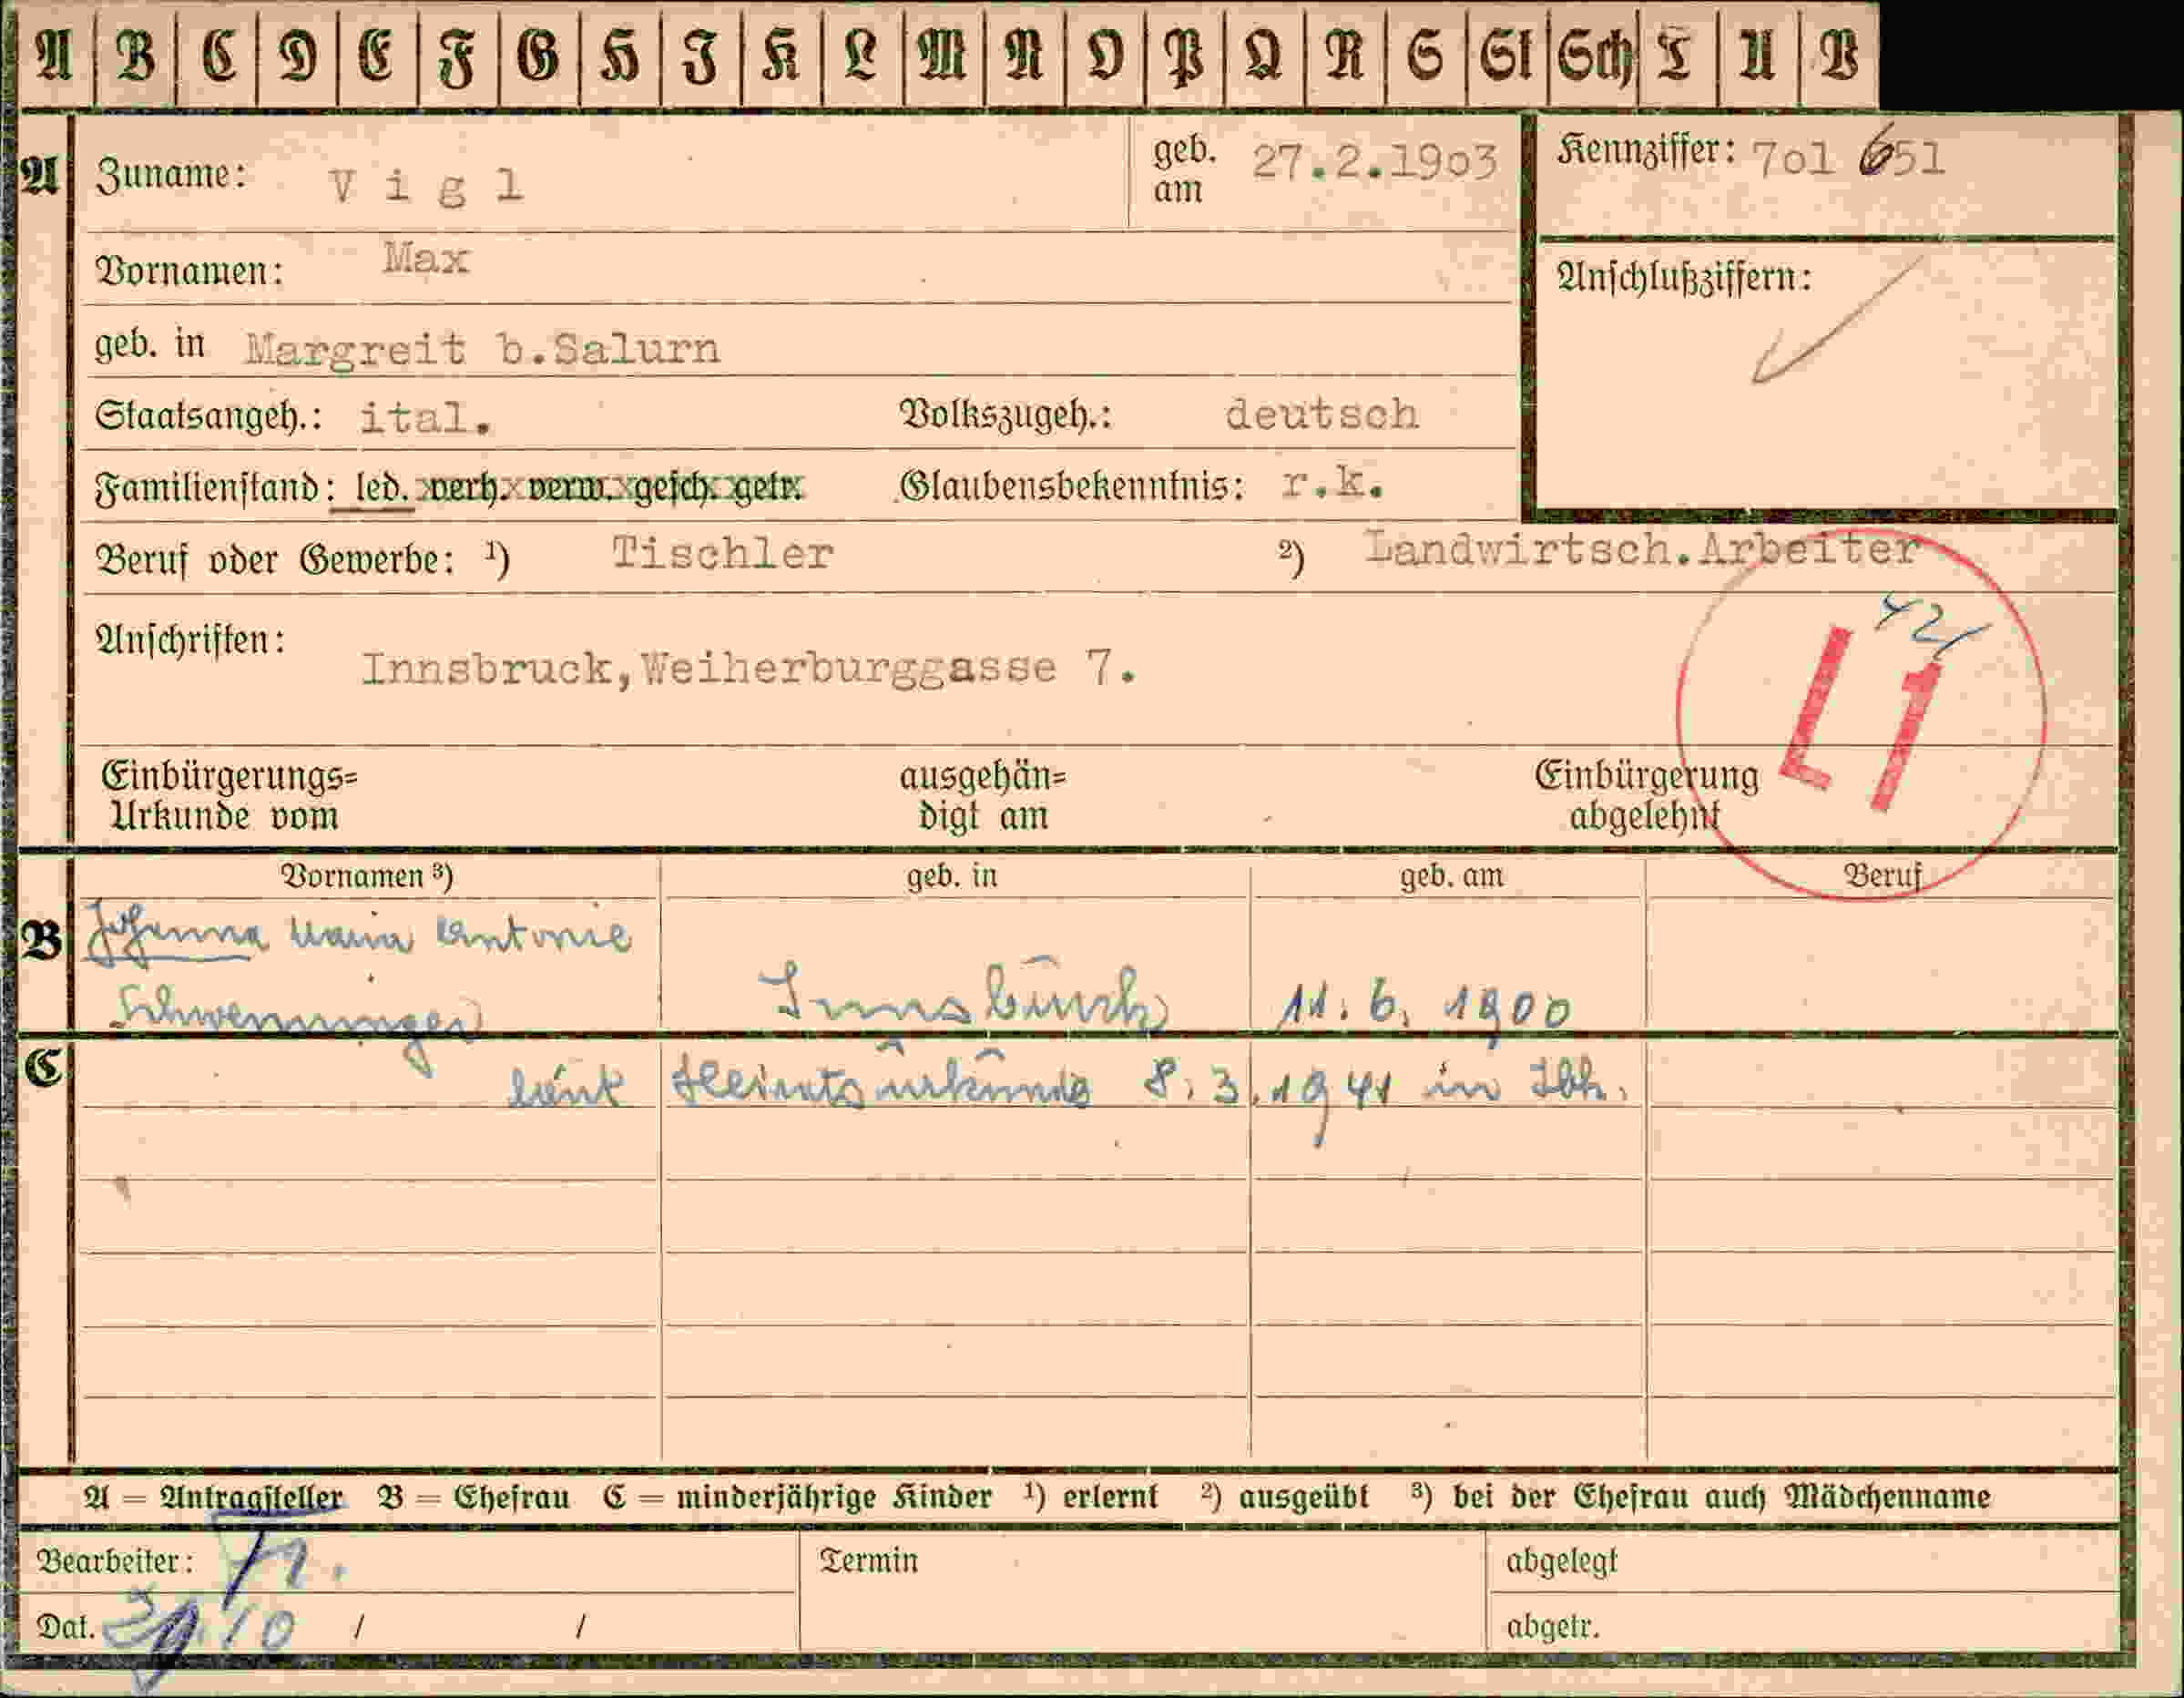 A B C D E F G H I K L M N O P Q R S St Sch T U V
A Zuname: Vigl geb. am 27.2.1903 Kennziffer: 701 651
Vornamen: Max Anschlußziffern:
geb. in Margreit b.Salurn
Staatsangeh.: ital. Volkszugeh.: deutsch
Familienstand: led. verh. verw. gesch. getr. Glaubensbekenntnis: r.k.
Beruf oder Gewerbe: ¹) Tischler ²) Landwirtsch.Arbeiter
42/
Anschriften: Innsbruck,Weiherburggasse 7.
L1
Einbürgerungs= ausgehän= Einbürgerung
Urkunde vom digt am abgelehnt
Vornamen ³) geb. in geb. am Beruf
B Johanna Maria Antonie
Schwenninger Innsbruck 11. 6. 1900
C laut Heiratsurkunde 8.3.1941 in Ibk.
A = Antragsteller B = Ehefrau C = minderjährige Kinder ¹) erlernt ²) ausgeübt ³) bei der Ehefrau auch Mädchenname
Bearbeiter: Termin abgelegt
Dat. / / abgetr.